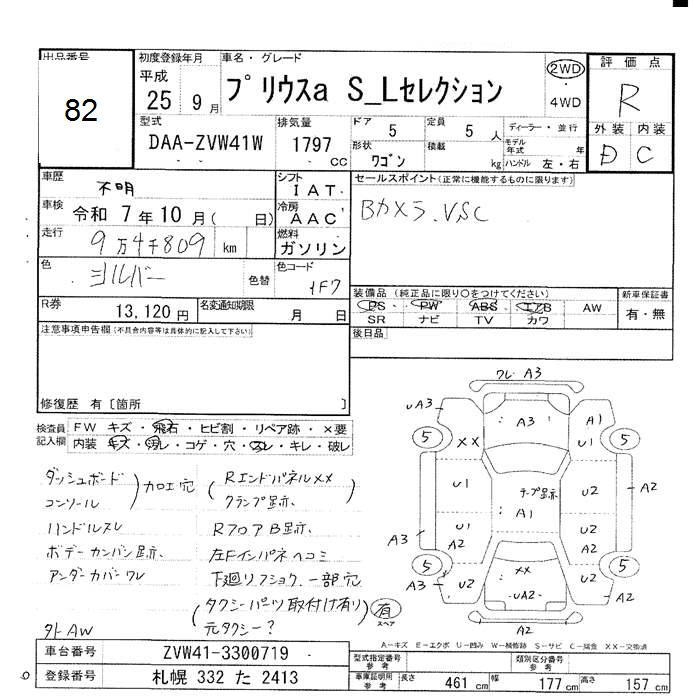 出品番号
82
初度登録年月
平成
25 9月
車名・グレード
プリウスa S_Lセレクション
2WD
・
4WD
評価点
R
外装 内装
D C
型式
DAA-ZVW41W
排気量
1797
CC
ドア
5
定員
5 人
形状
ワゴン
積載
kg
ディーラー・並行
モデル年式 年
ハンドル 左・右
車歴
不明
車検 令和 7年10月( 日)
走行
9万4千809 km
色
シルバー
色替
シフト
IAT
冷房
AAC
燃料
ガソリン
色コード
1F7
セールスポイント(正常に機能するものに限ります)
Bカメラ.VSC
R券
13,120円
名変通知期限
月 日
装備品(純正品に限り○をつけてください)
PS PW ABS エアB AW
SR ナビ TV カワ
新車保証書
有・無
後日品
注意事項申告欄(不具合内容等は具体的に記入して下さい)
修復歴 有〔箇所 〕
検査員記入欄
FW キズ・飛石・ヒビ割・リペア跡・×要
内装 キズ・汚レ・コゲ・穴・スレ・キレ・破レ
ダッシュボード
コンソール
カロエ穴
ハンドルスレ
ボデーカンバン跡
アンダーカバーワレ
外AW
Rエンドパネル××
クランプ跡
RフロアB跡
左Fインパネヘコミ
下廻リフショク.一部穴
(タクシーパーツ取付け有り)
元タクシー?
有
スペア
ワレ A3
uA3
A3
A1
5
××
U1
5
U1
テープ跡
U2
A2
U1
A2
A1
U2
A2
A3
5
××
5
A3
U2
UA2
U2
A2
A-キズ E-エクボ U-凹み W-補修跡 S-サビ C-腐食 ××-交換済
車台番号
ZVW41-3300719
登録番号
札幌 332 た 2413
型式指定番号
参考
類別区分番号
参考
車庫証明用
参考
長さ 461 cm
幅 177 cm
高さ 157 cm